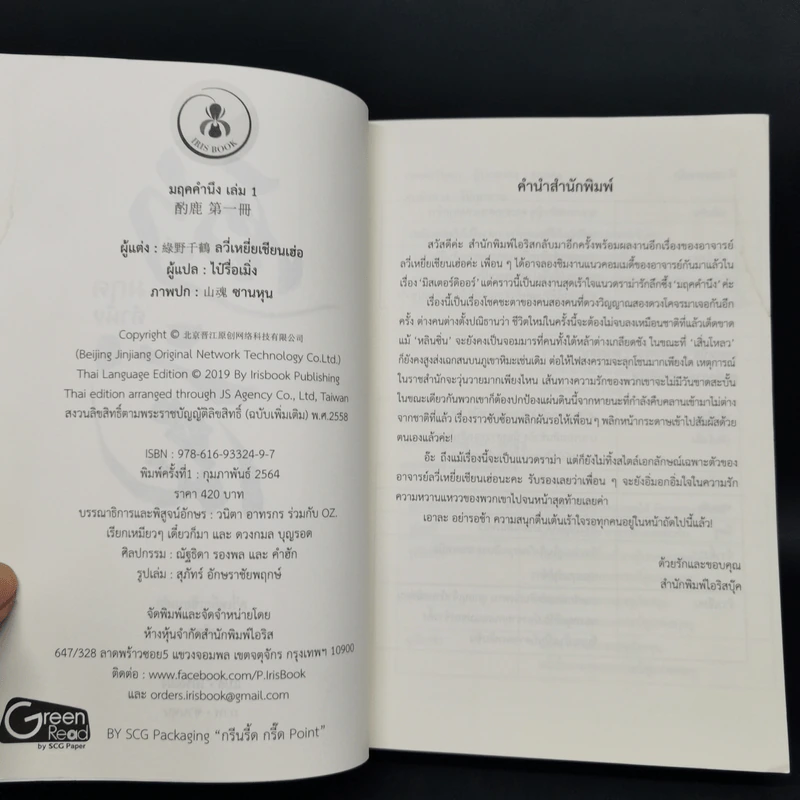 IRIS BOOK
มฤคคำนึง เล่ม 1
酌鹿 第一冊
ผู้แต่ง : 綠野千鶴 ลวี่เหยี่ยเชียนเฮ่อ
ผู้แปล : ไป๋รื่อเมิ่ง
ภาพปก : 山魂 ซานหุน
Copyright © 北京晋江原创网络科技有限公司
(Beijing Jinjiang Original Network Technology Co.Ltd.)
Thai Language Edition © 2019 By Irisbook Publishing
Thai edition arranged through JS Agency Co., Ltd, Taiwan
สงวนลิขสิทธิ์ตามพระราชบัญญัติลิขสิทธิ์ (ฉบับเพิ่มเติม) พ.ศ.2558
ISBN : 978-616-93324-9-7
พิมพ์ครั้งที่1 : กุมภาพันธ์ 2564
ราคา 420 บาท
บรรณาธิการและพิสูจน์อักษร : วนิดา อาทรกร ร่วมกับ OZ.
เรียกเหมียวๆ เดี๋ยวก็มา และ ดวงกมล บุญรอด
ศิลปกรรม : ณัฐธิดา รองพล และ คำฮัก
รูปเล่ม : สุภัทร์ อักษราชัยพฤกษ์
จัดพิมพ์และจัดจำหน่ายโดย
ห้างหุ้นจำกัดสำนักพิมพ์ไอริส
647/328 ลาดพร้าวซอย5 แขวงจอมพล เขตจตุจักร กรุงเทพฯ 10900
ติดต่อ : www.facebook.com/P.IrisBook
และ orders.irisbook@gmail.com
Green
Read
by SCG Paper
BY SCG Packaging “กรีนรี้ด กรี๊ด Point”
คำนำสำนักพิมพ์
สวัสดีค่ะ สำนักพิมพ์ไอริสกลับมาอีกครั้งพร้อมผลงานอีกเรื่องของอาจารย์
ลวี่เหยี่ยเชียนเฮ่อค่ะ เพื่อน ๆ ได้อาจลองชิมงานแนวคอมเมดี้ของอาจารย์กันมาแล้วใน
เรื่อง ‘มิสเตอร์ดิออร์’ แต่คราวนี้เป็นผลงานสุดเร้าใจแนวดราม่ารักลึกซึ้ง ‘มฤคคำนึง’ ค่ะ
เรื่องนี้เป็นเรื่องโชคชะตาของคนสองคนที่ดวงวิญญาณสองดวงโคจรมาเจอกันอีก
ครั้ง ต่างคนต่างตั้งปณิธานว่า ชีวิตใหม่ในครั้งนี้จะต้องไม่จบลงเหมือนชาติที่แล้วเด็ดขาด
แม้ ‘หลินซิ่น’ จะยังคงเป็นจอมมารที่คนทั้งใต้หล้าต่างเกลียดชัง ในขณะที่ ‘เสิ่นโหลว’
ก็ยังคงสูงส่งเฉกสนบนภูเขาหิมะเช่นเดิม ต่อให้ไฟสงครามจะลุกโชนมากเพียงใด เหตุการณ์
ในราชสำนักจะวุ่นวายมากเพียงไหน เส้นทางความรักของพวกเขาจะไม่มีวันขาดสะบั้น
ในขณะเดียวกันพวกเขาก็ต้องปกป้องแผ่นดินนี้จากหายนะที่กำลังคืบคลานเข้ามาไม่ต่าง
จากชาติที่แล้ว เรื่องราวซับซ้อนพลิกผันรอให้เพื่อนๆ พลิกหน้ากระดาษเข้าไปสัมผัสด้วย
ตนเองแล้วค่ะ!
อ๊ะ ถึงแม้เรื่องนี้จะเป็นแนวดราม่า แต่ก็ยังไม่ทิ้งสไตล์เอกลักษณ์เฉพาะตัวของ
อาจารย์ลวี่เหยี่ยเชียนเฮ่อนะคะ รับรองเลยว่าเพื่อน ๆ จะยังอิ่มอกอิ่มใจในความรัก
ความหวานแหววของพวกเขาไปจนหน้าสุดท้ายเลยค่า
เอาละ อย่ารอช้า ความสนุกตื่นเต้นเร้าใจรอทุกคนอยู่ในหน้าถัดไปนี้แล้ว!
ด้วยรักและขอบคุณ
สำนักพิมพ์ไอริสบุ๊ค